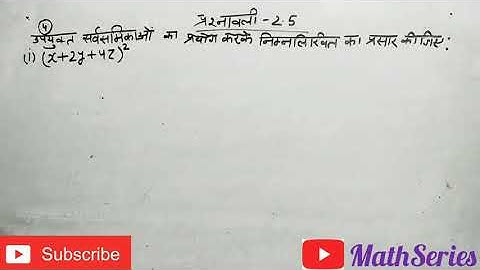 प्रश्नावली - 2.5
④
उपयुक्त सर्वसमिकाओं का प्रयोग करके निम्नलिखित का प्रसार कीजिए:
(i) (x+2y+4z)²
Subscribe
MathSeries